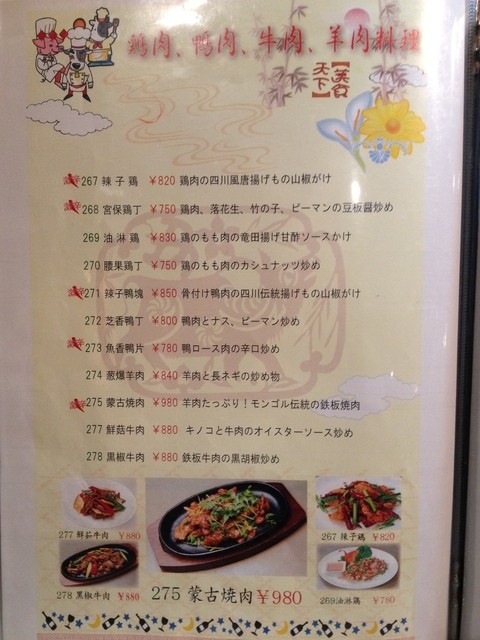 鶏肉、鴨肉、牛肉、羊肉料理
【美食天下】
267 辣子鶏 ￥820 鶏肉の四川風唐揚げもの山椒がけ
268 宮保鶏丁 ￥750 鶏肉、落花生、竹の子、ピーマンの豆板醤炒め
269 油淋鶏 ￥830 鶏のもも肉の竜田揚げ甘酢ソースかけ
270 腰果鶏丁 ￥750 鶏のもも肉のカシュナッツ炒め
271 辣子鴨塊 ￥850 骨付け鴨肉の四川伝統揚げもの山椒がけ
272 芝香鴨丁 ￥800 鴨肉とナス、ピーマン炒め
273 魚香鴨片 ￥780 鴨ロース肉の辛口炒め
274 葱爆羊肉 ￥840 羊肉と長ネギの炒め物
275 蒙古焼肉 ￥980 羊肉たっぷり！モンゴル伝統の鉄板焼肉
277 鮮菇牛肉 ￥880 キノコと牛肉のオイスターソース炒め
278 黒椒牛肉 ￥880 鉄板牛肉の黒胡椒炒め
277 鮮茹牛肉 ￥880
267 辣子鶏 ￥820
278 黒椒牛肉 ￥880
275 蒙古焼肉￥980
269油淋鶏 ￥780